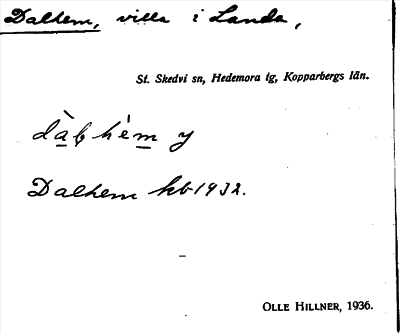 Dalhem, villa i Landa,
St. Skedvi sn, Hedemora tg, Kopparbergs län.
dàḷhèm y
Dalhem kb 1932.
OLLE HILLNER, 1936.